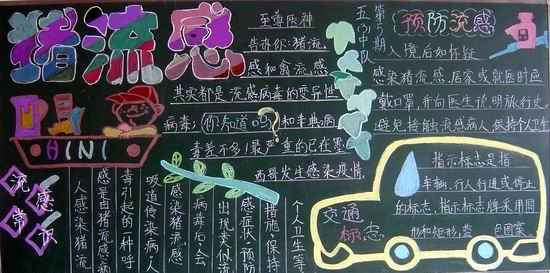 猪流感
至尊灰神
告诉你:猪流
感和禽流感
其实都是流感病毒的变异性
病毒,你知道吗?和丰典病
毒差不多!最严重的已在墨
西哥发生感染疫情
第5期
五中队
预防流感
入境后如怀疑
感染猪流感,居家或就医时应
戴口罩,并向医生说明旅行史,
避免接触流感病人,保持个人卫生
HINI
流感常识
人感染猪流
感是由猪流感病
毒引起的一种呼
吸道传染病,人
感染猪流感
病毒后,会
出现类似流
感症状,预防
措施:保持
个人卫生等
交通标志
指示标志是指
车辆、行人行进或停止
的标志。指示标志牌采用圆
形和矩形,蓝 色图案。